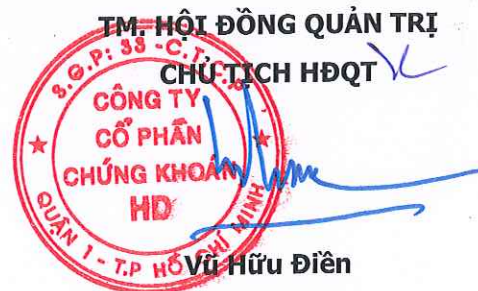 TM. HỘI ĐỒNG QUẢN TRỊ
CHỦ TỊCH HĐQT
S.G.P: 38 - C.T.C.P
CÔNG TY
CỔ PHẦN
CHỨNG KHOÁN
HD
QUẬN 1 - T.P HỒ CHÍ MINH
Vũ Hữu Điền